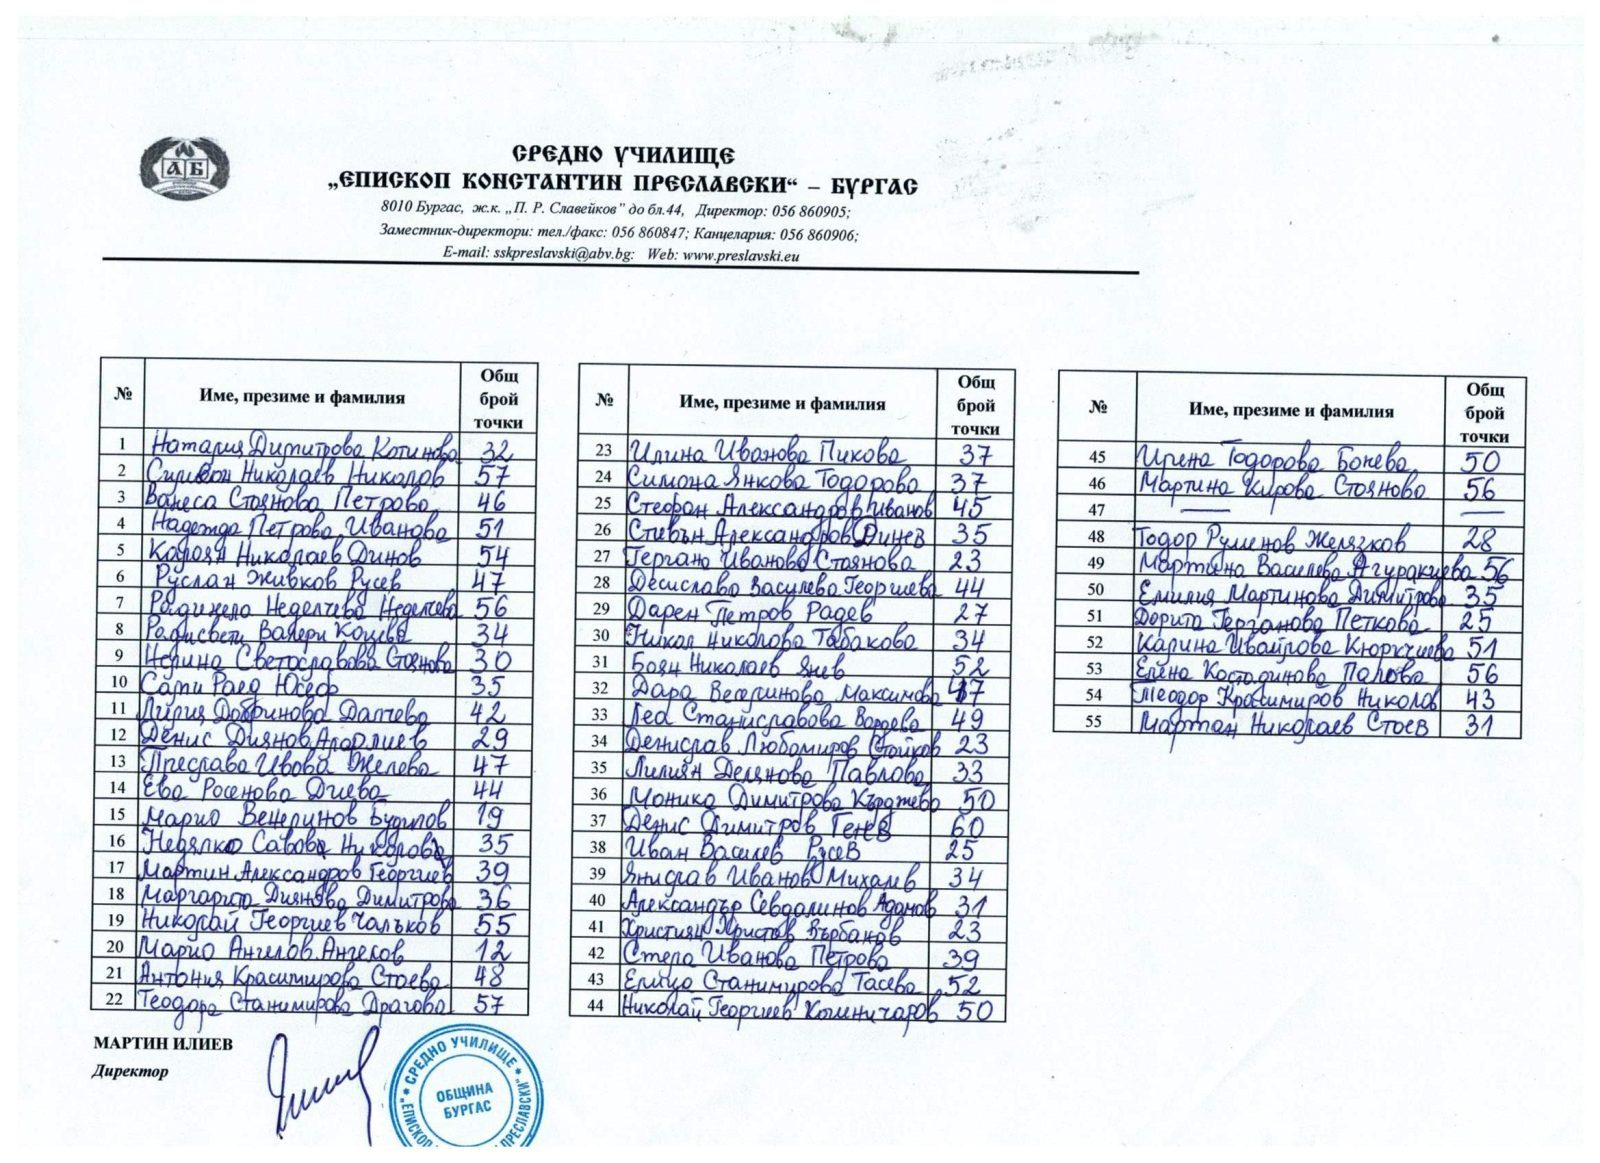 А Б
СРЕДНО УЧИЛИЩЕ
„ЕПИСКОП КОНСТАНТИН ПРЕСЛАВСКИ“ – БУРГАС
8010 Бургас, ж.к. „П. Р. Славейков” до бл.44, Директор: 056 860905;
Заместник-директори: тел./факс: 056 860847; Канцелария: 056 860906;
E-mail: sskpreslavski@abv.bg: Web: www.preslavski.eu
№ Име, презиме и фамилия Общ брой точки
1 Наталия Димитрова Котинова 32
2 Николаев Николов 57
3 Ванеса Стоянова Петрова 46
4 Надежда Петрова Иванова 51
5 Калоян Николаев Динов 54
6 Руслан Живков Русев 47
7 Радинела Неделчева Неделчева 56
8 Радисвета Валери Коцева 34
9 Нерина Светославова Стоянова 30
10 Сами Раед Юсеф 35
11 Лилия Добринова Далчева 42
12 Денис Диянов 29
13 Преслава Ивова Желева 47
14 Ева Росенова Дчева 44
15 Марио Венелинов 19
16 Недялко Савова Николова 35
17 Мартин Александров Георгиев 39
18 Маргарита Диянова Димитрова 36
19 Николай Георгиев Чалъков 55
20 Марио Ангелов Ангелов 12
21 Антония Красимирова Стоева 48
22 Теодора Станимирова Драгова 57
№ Име, презиме и фамилия Общ брой точки
23 Илина Иванова Пикова 37
24 Симона Янкова Тодорова 37
25 Стефан Александров Иванов 45
26 Стивън Александров Динев 35
27 Гергана Иванова Стоянова 23
28 Десислава Василева Георгиева 44
29 Дарен Петров Радев 27
30 Никол Николова Табакова 34
31 Боян Николаев Янев 52
32 Дара Веселинова Максимова 47
33 Леа Станиславова 49
34 Денислав Любомиров Стойков 23
35 Лилиян Делянова Павлова 33
36 Моника Димитрова Кърджева 50
37 Денис Димитров Генев 60
38 Иван Василев Русев 25
39 Янислав Иванов Михалев 34
40 Александър Севдалинов Адамов 31
41 Християн Христов Върбанов 23
42 Стела Иванова Петрова 39
43 Елица Станимирова Тасева 52
44 Николай Георгиев Комничаров 50
№ Име, презиме и фамилия Общ брой точки
45 Ирена Тодорова Бонева 50
46 Мартина Кирова Стоянова 56
47 — —
48 Тодор Руменов Желязков 28
49 Мартина Василева Агуракиева 56
50 Емилия Мартинова Димитрова 35
51 Дорита Герганова Петкова 25
52 Карина Ивайлова Кюркчиева 51
53 Елена Костадинова Палова 56
54 Теодор Красимиров Николов 43
55 Мартан Николаев Стоев 31
МАРТИН ИЛИЕВ
Директор
СРЕДНО УЧИЛИЩЕ * „ЕПИСКОП ПРЕСЛАВСКИ“
ОБЩИНА
БУРГАС